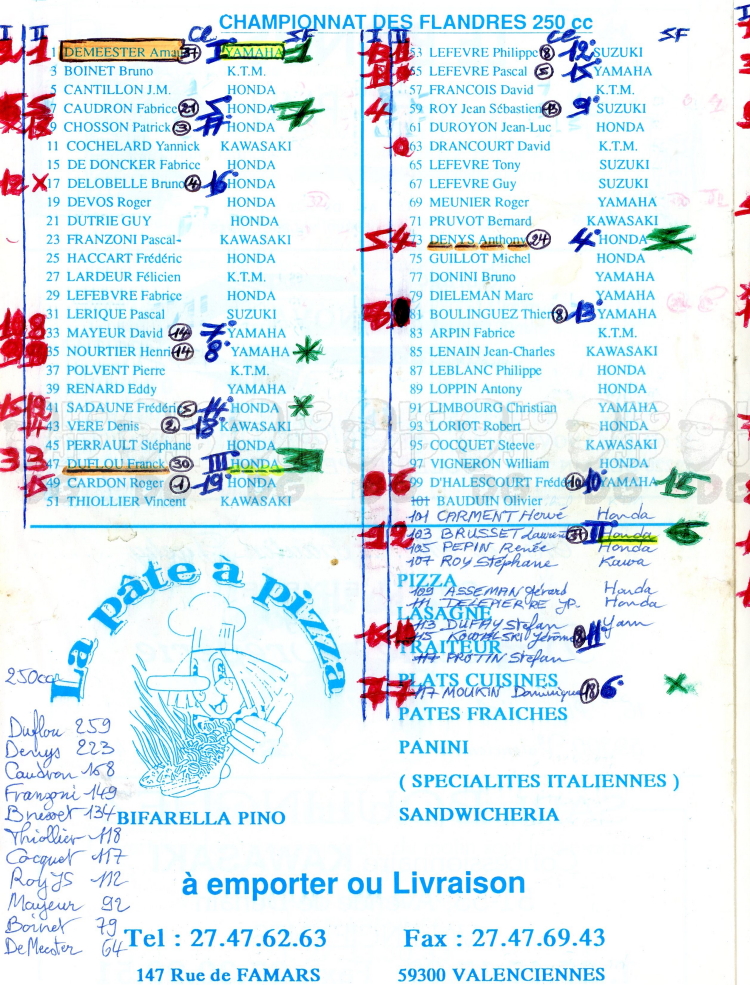 CHAMPIONNAT DES FLANDRES 250 cc
I II CL SF
1 1 1 DEMEESTER Arna 37 I° YAMAHA 1
3 BOINET Bruno K.T.M.
5 CANTILLON J.M. HONDA
5 5 7 CAUDRON Fabrice 21 5° HONDA
9 CHOSSON Patrick 3 17° HONDA
11 COCHELARD Yannick KAWASAKI
15 DE DONCKER Fabrice HONDA
12 X 17 DELOBELLE Bruno 4 16° HONDA
19 DEVOS Roger HONDA
21 DUTRIE GUY HONDA
23 FRANZONI Pascal- KAWASAKI
25 HACCART Frédéric HONDA
27 LARDEUR Félicien K.T.M.
29 LEFEBVRE Fabrice HONDA
31 LERIQUE Pascal SUZUKI
33 MAYEUR David 14 7° YAMAHA
35 NOURTIER Henri 14 8° YAMAHA
37 POLVENT Pierre K.T.M.
39 RENARD Eddy YAMAHA
41 SADAUNE Frédéric 5 14° HONDA
43 VERE Denis 2 18° KAWASAKI
45 PERRAULT Stéphane HONDA
3 3 47 DUFLOU Franck 30 III° HONDA 3
49 CARDON Roger 1 19° HONDA
51 THIOLLIER Vincent KAWASAKI
I II CL SF
53 LEFEVRE Philippe 8 12° SUZUKI
55 LEFEVRE Pascal 5 15° YAMAHA
57 FRANCOIS David K.T.M.
4 59 ROY Jean Sébastien 13 9° SUZUKI
61 DUROYON Jean-Luc HONDA
63 DRANCOURT David K.T.M.
65 LEFEVRE Tony SUZUKI
67 LEFEVRE Guy SUZUKI
69 MEUNIER Roger YAMAHA
71 PRUVOT Bernard KAWASAKI
5 4 73 DENYS Anthony 24 4° HONDA
75 GUILLOT Michel HONDA
77 DONINI Bruno YAMAHA
79 DIELEMAN Marc YAMAHA
81 BOULINGUEZ Thier 8 13° YAMAHA
83 ARPIN Fabrice K.T.M.
85 LENAIN Jean-Charles KAWASAKI
87 LEBLANC Philippe HONDA
89 LOPPIN Antony HONDA
91 LIMBOURG Christian YAMAHA
93 LORIOT Robert HONDA
95 COCQUET Steeve KAWASAKI
97 VIGNERON William HONDA
6 99 D'HALESCOURT Fréd 10 10° YAMAHA 15
101 BAUDUIN Olivier
101 CARMENT Hervé Honda
2 103 BRUSSET Laurent 31 II° Honda
105 PEPIN Renée Honda
107 ROY Stéphane Kawa
PIZZA
109 ASSEMAN Gérard Honda
111 DELEPIERRE JP. Honda
LASAGNE
113 DUFAY Stefan Yam
115 KOWALSKI Jérôme 8 11°
TRAITEUR
117 PROTIN Stefan
PLATS CUISINES
7 7 117 MOUKIN Dominique 18 6°
PATES FRAICHES
PANINI
( SPECIALITES ITALIENNES )
SANDWICHERIA
La pâte à pizza
250cc
Duflou 259
Denys 223
Caudron 168
Franzoni 149
Brusset 134
Thiollier 118
Cocquet 117
Roy JS 112
Mayeur 92
Boinet 79
DeMeester 64
BIFARELLA PINO
à emporter ou Livraison
Tel : 27.47.62.63 Fax : 27.47.69.43
147 Rue de FAMARS 59300 VALENCIENNES